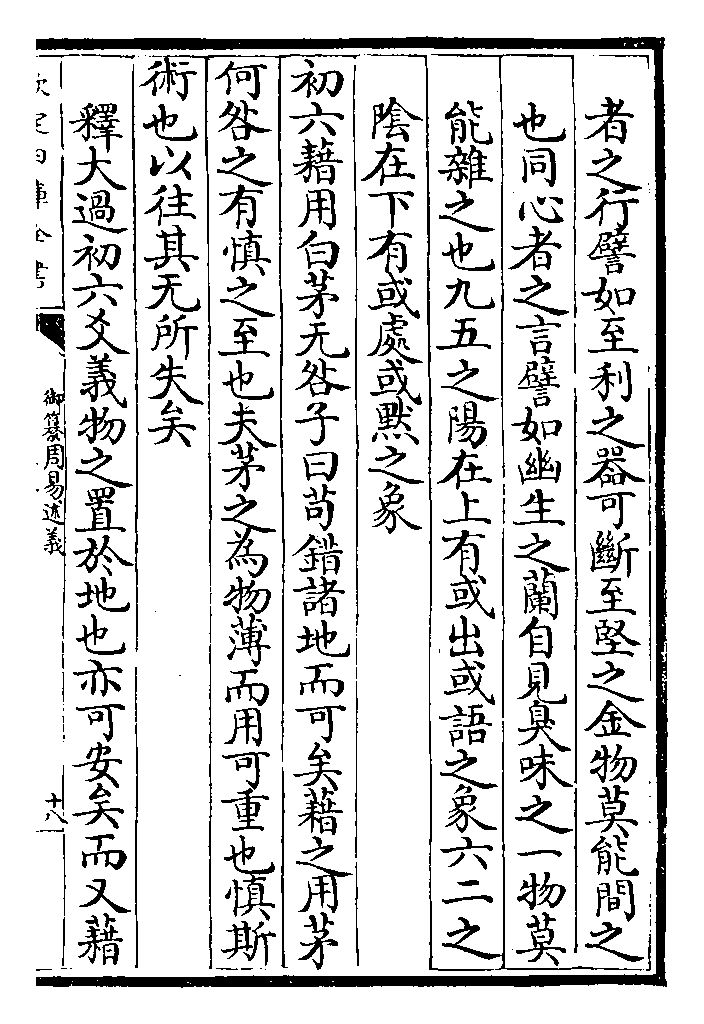 者之行譬如至利之器可斷至堅之金物莫能間之
也同心者之言譬如幽生之蘭自見臭味之一物莫
能雜之也九五之陽在上有或出或語之象六二之
陰在下有或處或黙之象
初六藉用白茅无咎子曰茍錯諸地而可矣藉之用茅
何咎之有慎之至也夫茅之為物薄而用可重也慎斯
術也以往其无所失矣
釋大過初六爻義物之置於地也亦可安矣而又藉
欽定四庫全書
御纂周易述義
十八